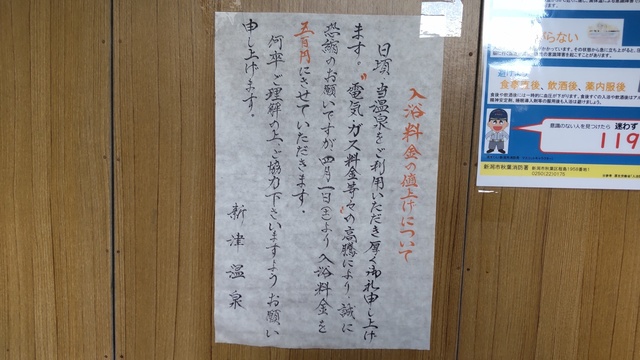 入浴料金の値上げについて
日頃、当温泉をご利用いただき厚く御礼申し上げ
ます。"電気・ガス料金等々"の高騰により、誠に
恐縮のお願いですが四月一日(土)より入浴料金を
五百円にさせていただきます。
何卒ご理解の上、ご協力下さいますようお願い
申し上げます。
新津温泉
らない
食事直後、飲酒後、薬内服後
意識のない人を見つけたら 迷わず
119
新潟市秋葉消防署